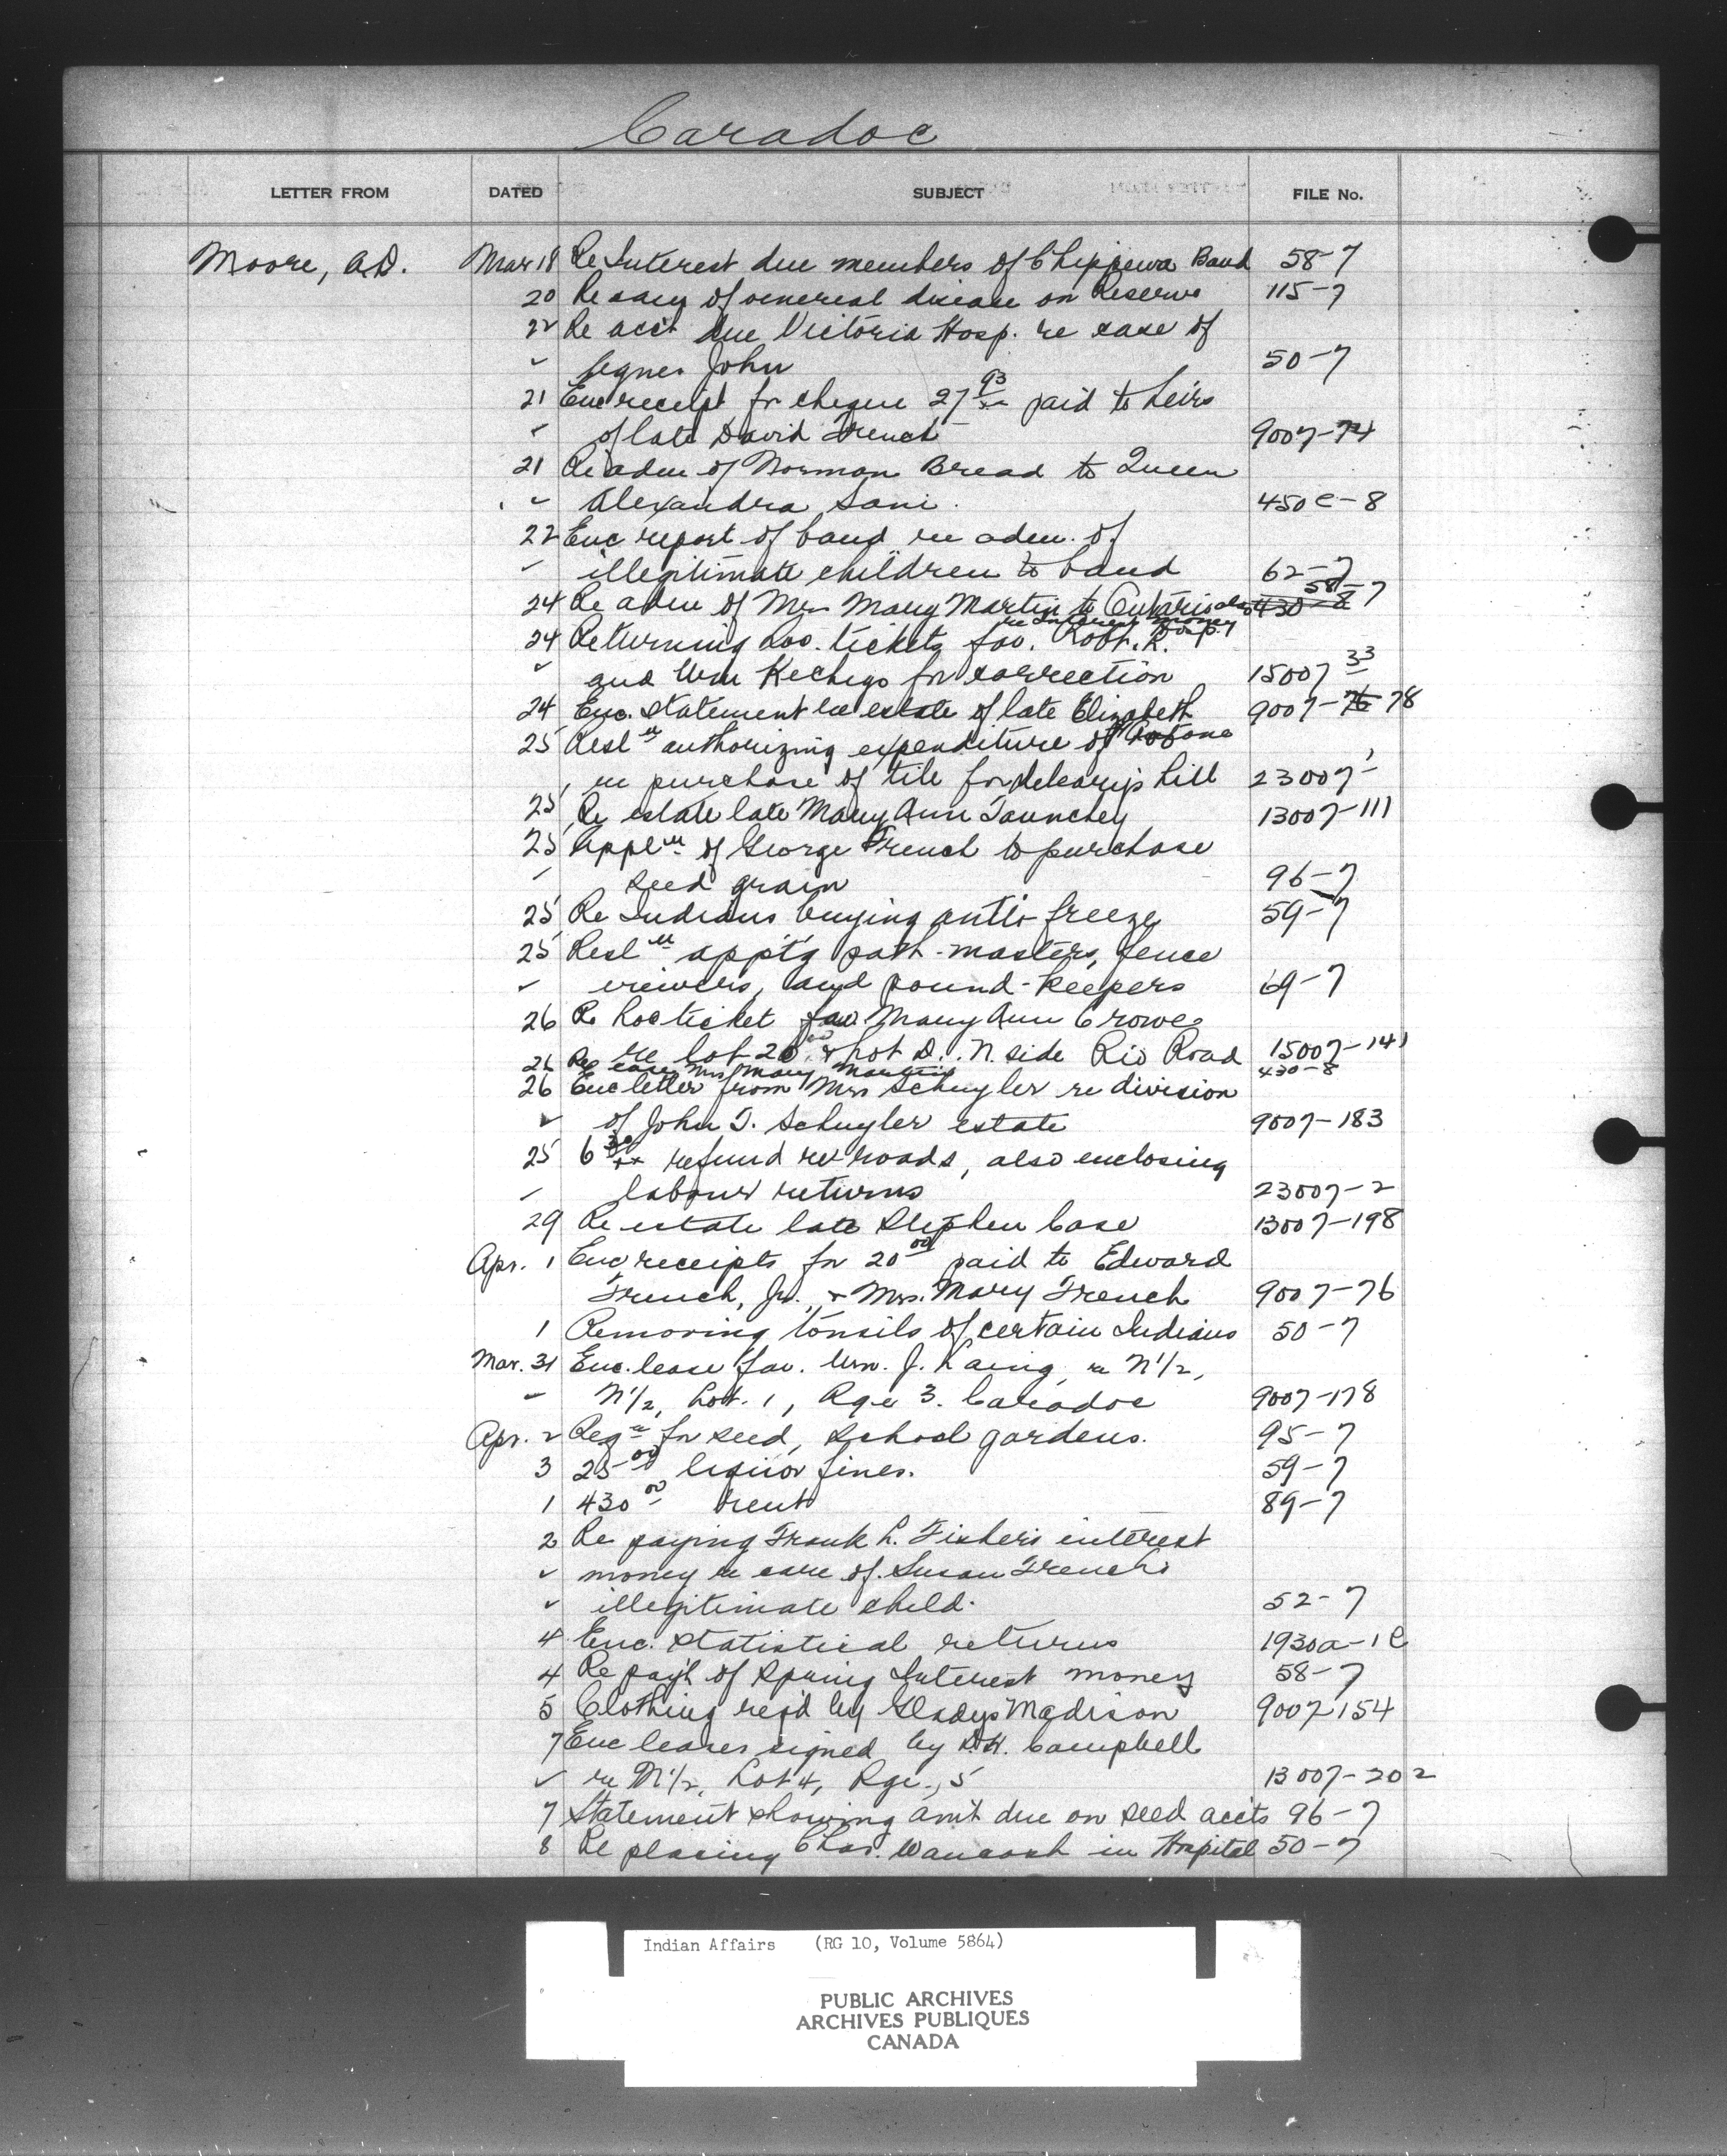 Caradoc
LETTER FROM DATED SUBJECT FILE No.
Moore, A.D. Mar 18 Re Interest due members of Chippewa Band 58-7
20 Re of venereal disease on Reserve 115-7
22 Re acc't due Victoria Hosp. re case of
" Agnes John 50-7
21 Enc receipt for cheque 27 93/xx paid to heirs
" of late David French 9007-74
21 Re adm of Norman Bread to Queen
" Alexandra Sani. 450 C-8
22 Enc report of band re adm. of
" illegitimate children to band 62-7
24 Re adm of Mrs Mary Martin to Ontario Hosp. also re Interest money 430-8 58-7
24 Returning loc. tickets fav. Robt. R.
" and Wm Kechego for correction 15007 33
24 Enc. statement re estate of late Elizabeth Antone 9007-76 78
25 Resl'n authorizing expenditure of
" re purchase of tile for Deleary's hill 23007-1
25 Re estate late Mary Ann Taunchey 13007-111
25 Appl'n of George French to purchase
" seed grain 96-7
25 Re Indians buying anti-freeze 59-7
25 Resl'n appt'g path-masters, fence
" viewers, and pound-keepers 69-7
26 Re Loc ticket fav Mary Ann Crowe
re Lot 20 & Lot D. N. side Rio Road 15007-141
26 Re case Mrs Mary Martin 430-8
26 Enc letter from Mrs Schuyler re division
" of John T. Schuyler estate 9007-183
25 6 30/xx refund re roads, also enclosing
" labour returns 23007-2
29 Re estate late Stephen Case 13007-198
Apr. 1 Enc receipts for 20 00 paid to Edward
French, Jr., & Mrs. Mary French 9007-76
1 Removing tonsils of certain Indians 50-7
Mar. 31 Enc. lease fav. Wm. J. Laing, re N 1/2,
" N 1/2, Lot. 1, Rge 3. Caradoc 9007-178
Apr. 2 Reqn for seed, school gardens. 95-7
3 25 00 liquor fines. 59-7
1 430 00 rent 89-7
2 Re paying Frank L. Fisher's interest
" money re care of Susan French's
" illegitimate child. 52-7
4 Enc. Statistical returns 1930a-1C
4 Re pay't of Spring Interest money 58-7
5 Clothing req'd by Gladys Madison 9007-154
7 Enc leases signed by D.H. Campbell
" re N 1/2, Lot 4, Rge., 5 13007-202
7 Statement showing am't due on seed acc'ts 96-7
8 Re placing Chas. Waucaush in Hospital 50-7
Indian Affairs (RG 10, Volume 5864)
PUBLIC ARCHIVES
ARCHIVES PUBLIQUES
CANADA